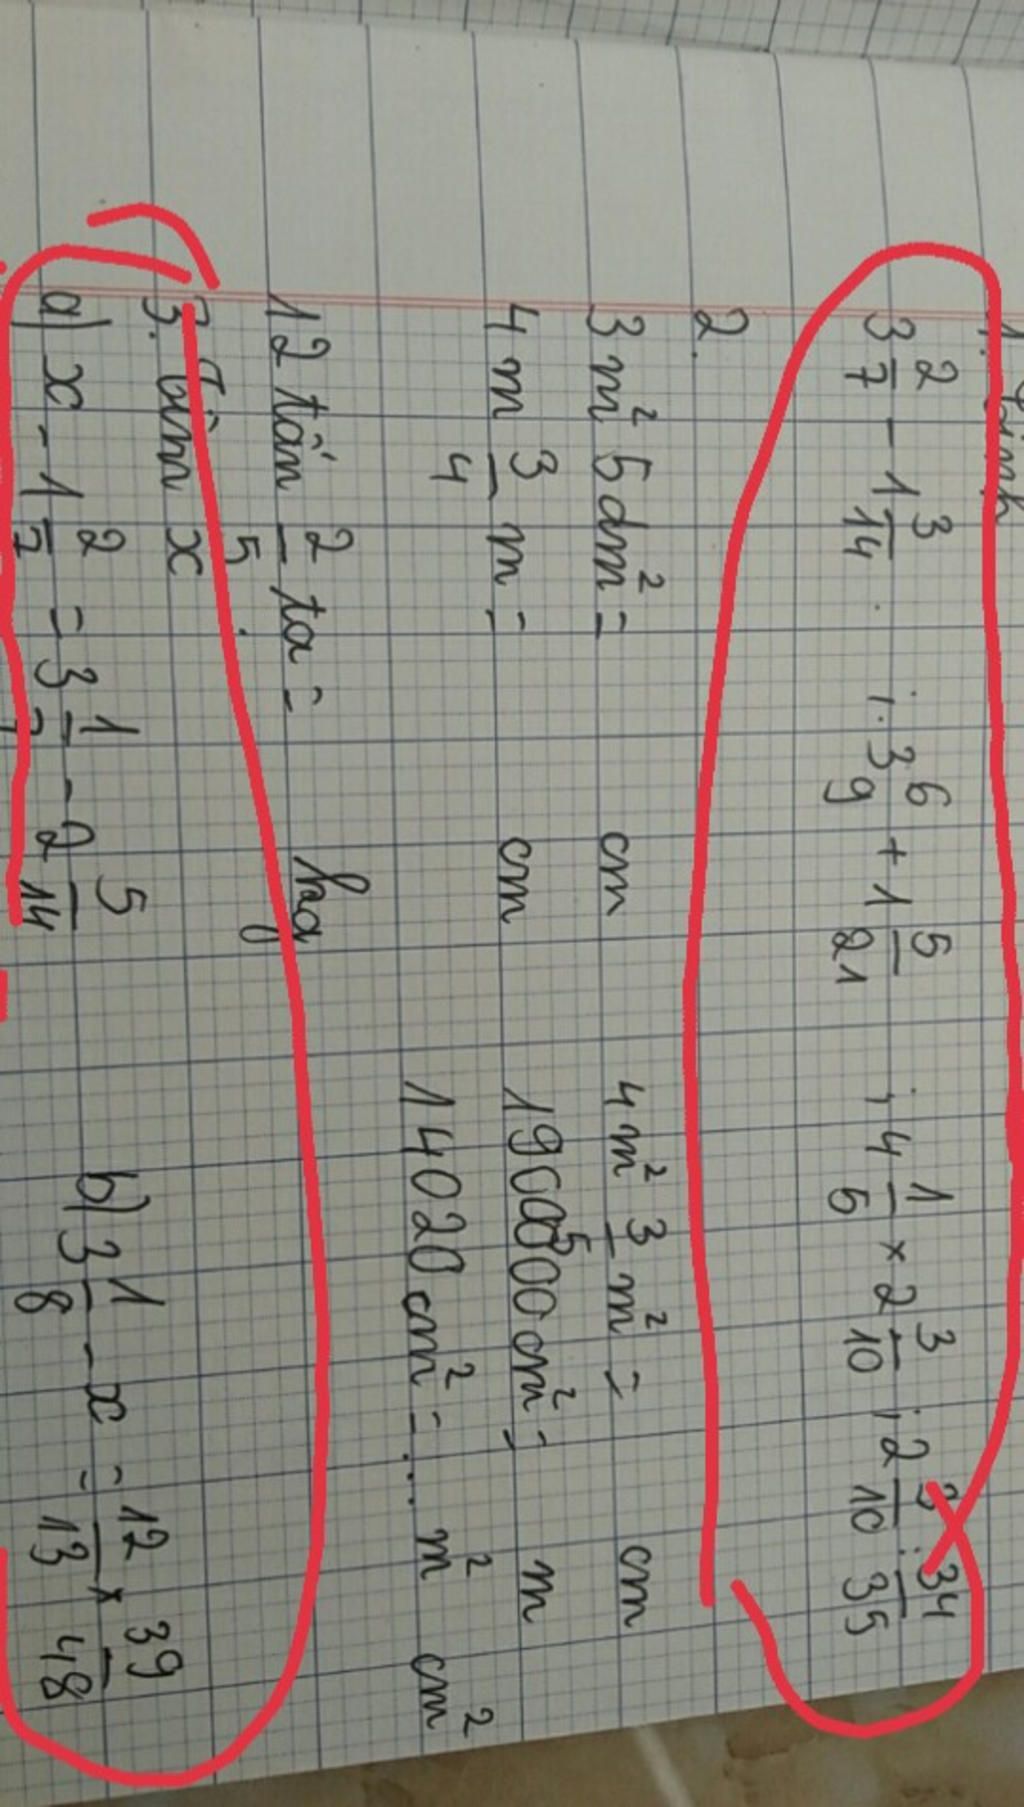 1. Tính
3 2/7 - 1 3/14 ; 3 6/9 + 1 5/21 ; 4 1/5 × 2 3/10 ; 2 3/10 : 34/35
2.
3m² 5dm² = cm 4m² 3/5 m² = cm
4m 3/4 m = cm 190000cm² = m
12 tấn 2/5 tạ = kg 14020cm² = ... m² cm²
3. Tìm x
a) x - 1 2/7 = 3 1/7 - 2 5/14 b) 3 1/8 - x = 12/13 × 39/48